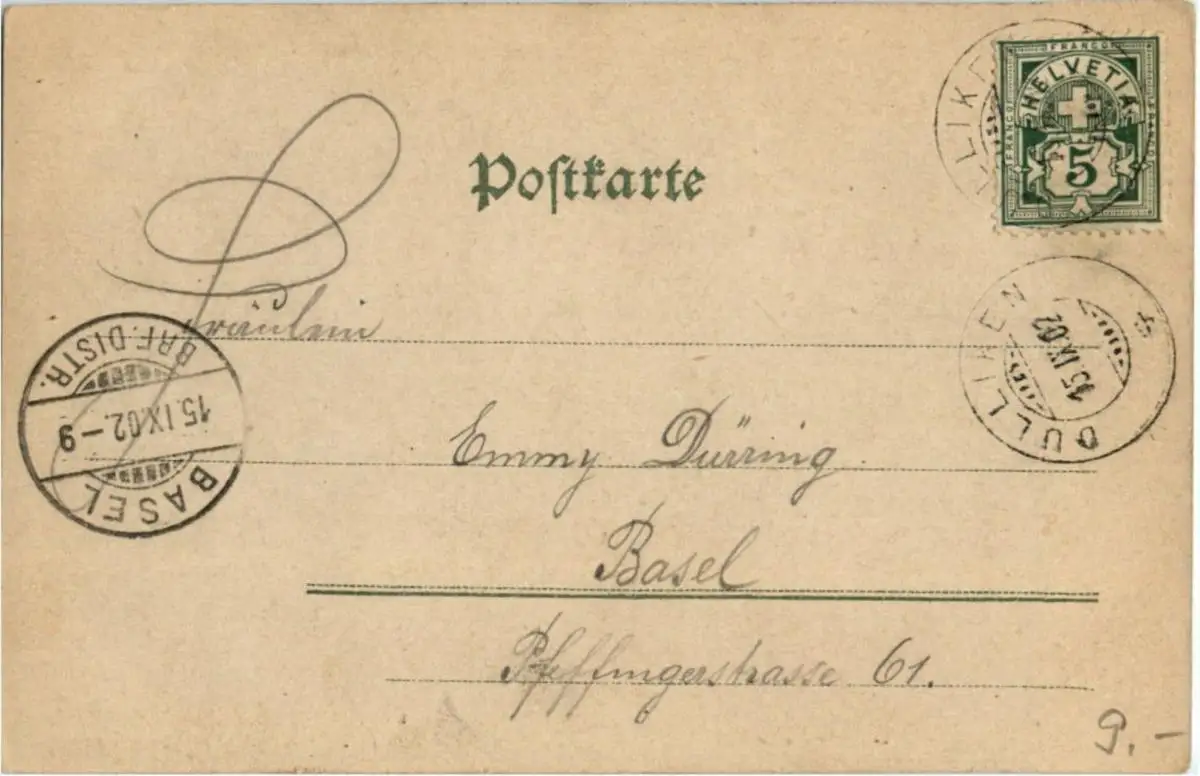 Postkarte
FRANCO
HELVETIA
FRANCO
FRANCO
5
LLIKE
DULLIKEN
15.IX.02
Fräulein
BRF.DISTR.
15.IX.02.-9
BASEL
Emmy Dürring
Basel
Pfeffingerstrasse 61.
9.-